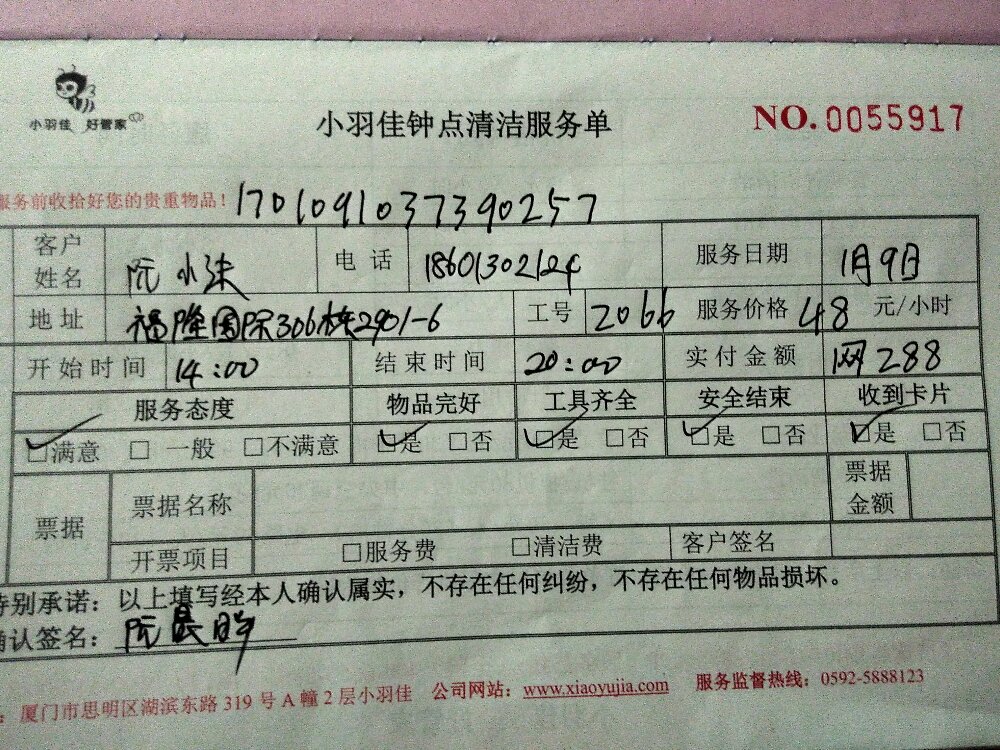 小羽佳 好管家
小羽佳钟点清洁服务单
NO.0055917
服务前收拾好您的贵重物品! 1701091037390257
客户姓名 阮小姝 电话 18601302124 服务日期 1月9日
地址 福隆国际306栋2901-6 工号 2066 服务价格 48 元/小时
开始时间 14:00 结束时间 20:00 实付金额 网288
服务态度 物品完好 工具齐全 安全结束 收到卡片
☑满意 □一般 □不满意 ☑是 □否 ☑是 □否 ☑是 □否 ☑是 □否
票据 票据名称 票据金额
开票项目 □服务费 □清洁费 客户签名
特别承诺：以上填写经本人确认属实，不存在任何纠纷，不存在任何物品损坏。
确认签名：阮晨
厦门市思明区湖滨东路319号A幢2层小羽佳 公司网站：www.xiaoyujia.com 服务监督热线：0592-5888123